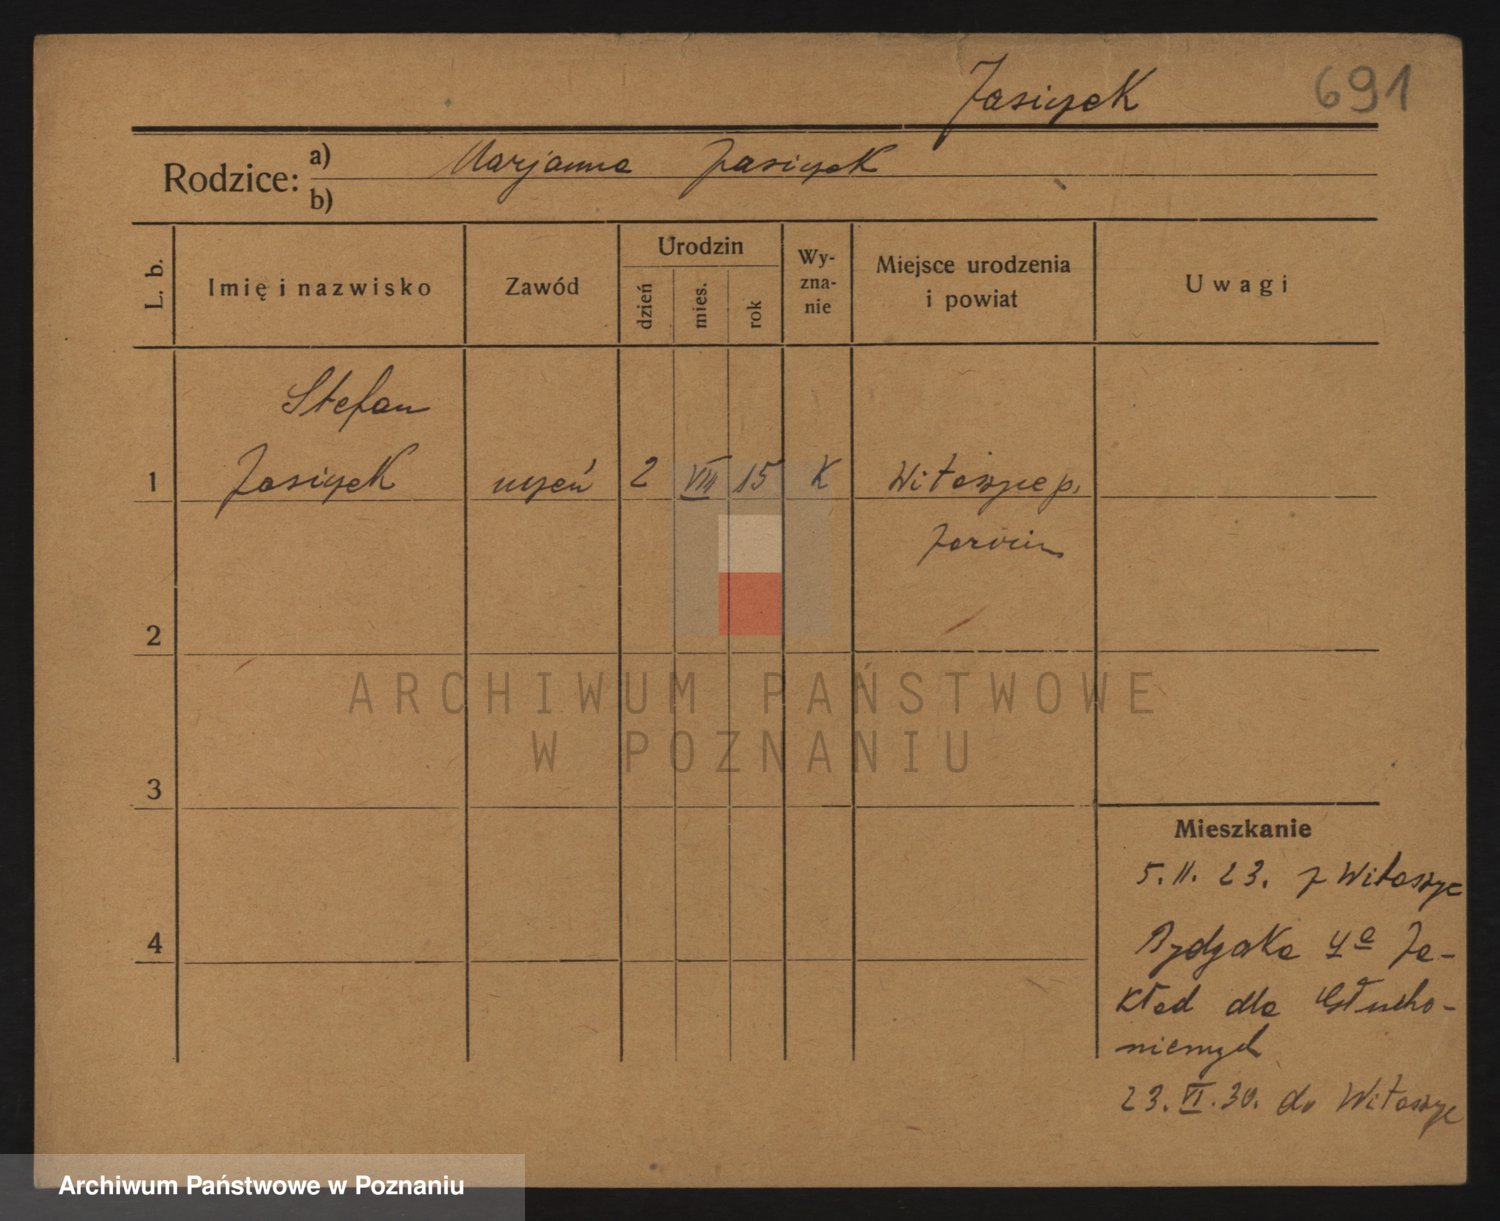 Jasiczek
691
Rodzice: a) Marjanna Jasiczek
b)
L. b.
Imię i nazwisko
Zawód
Urodzin
dzień
mies.
rok
Wy-
zna-
nie
Miejsce urodzenia
i powiat
Uwagi
Stefan
1 Jasiczek uczeń 2 VIII 15 K Witaszyce p.
Jarocin
2
ARCHIWUM PAŃSTWOWE
W POZNANIU
3
Mieszkanie
5. II. 23. z Witaszyc
4 4a Za-
kład dla Głucho-
niemych
23. VI. 30. do Witaszyc
Archiwum Państwowe w Poznaniu